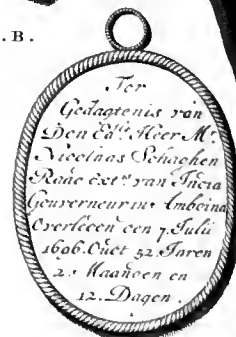 .B.
Ter
Gedagtenis van
Den Ed.le Heer M.r
Nicolaas Schaghen
Raad Ext.s van India
Gouverneur in Amboina
Overleeden den 7. Julii
1696. Oudt 52. Jaren
2. Maanden en
12. Dagen.